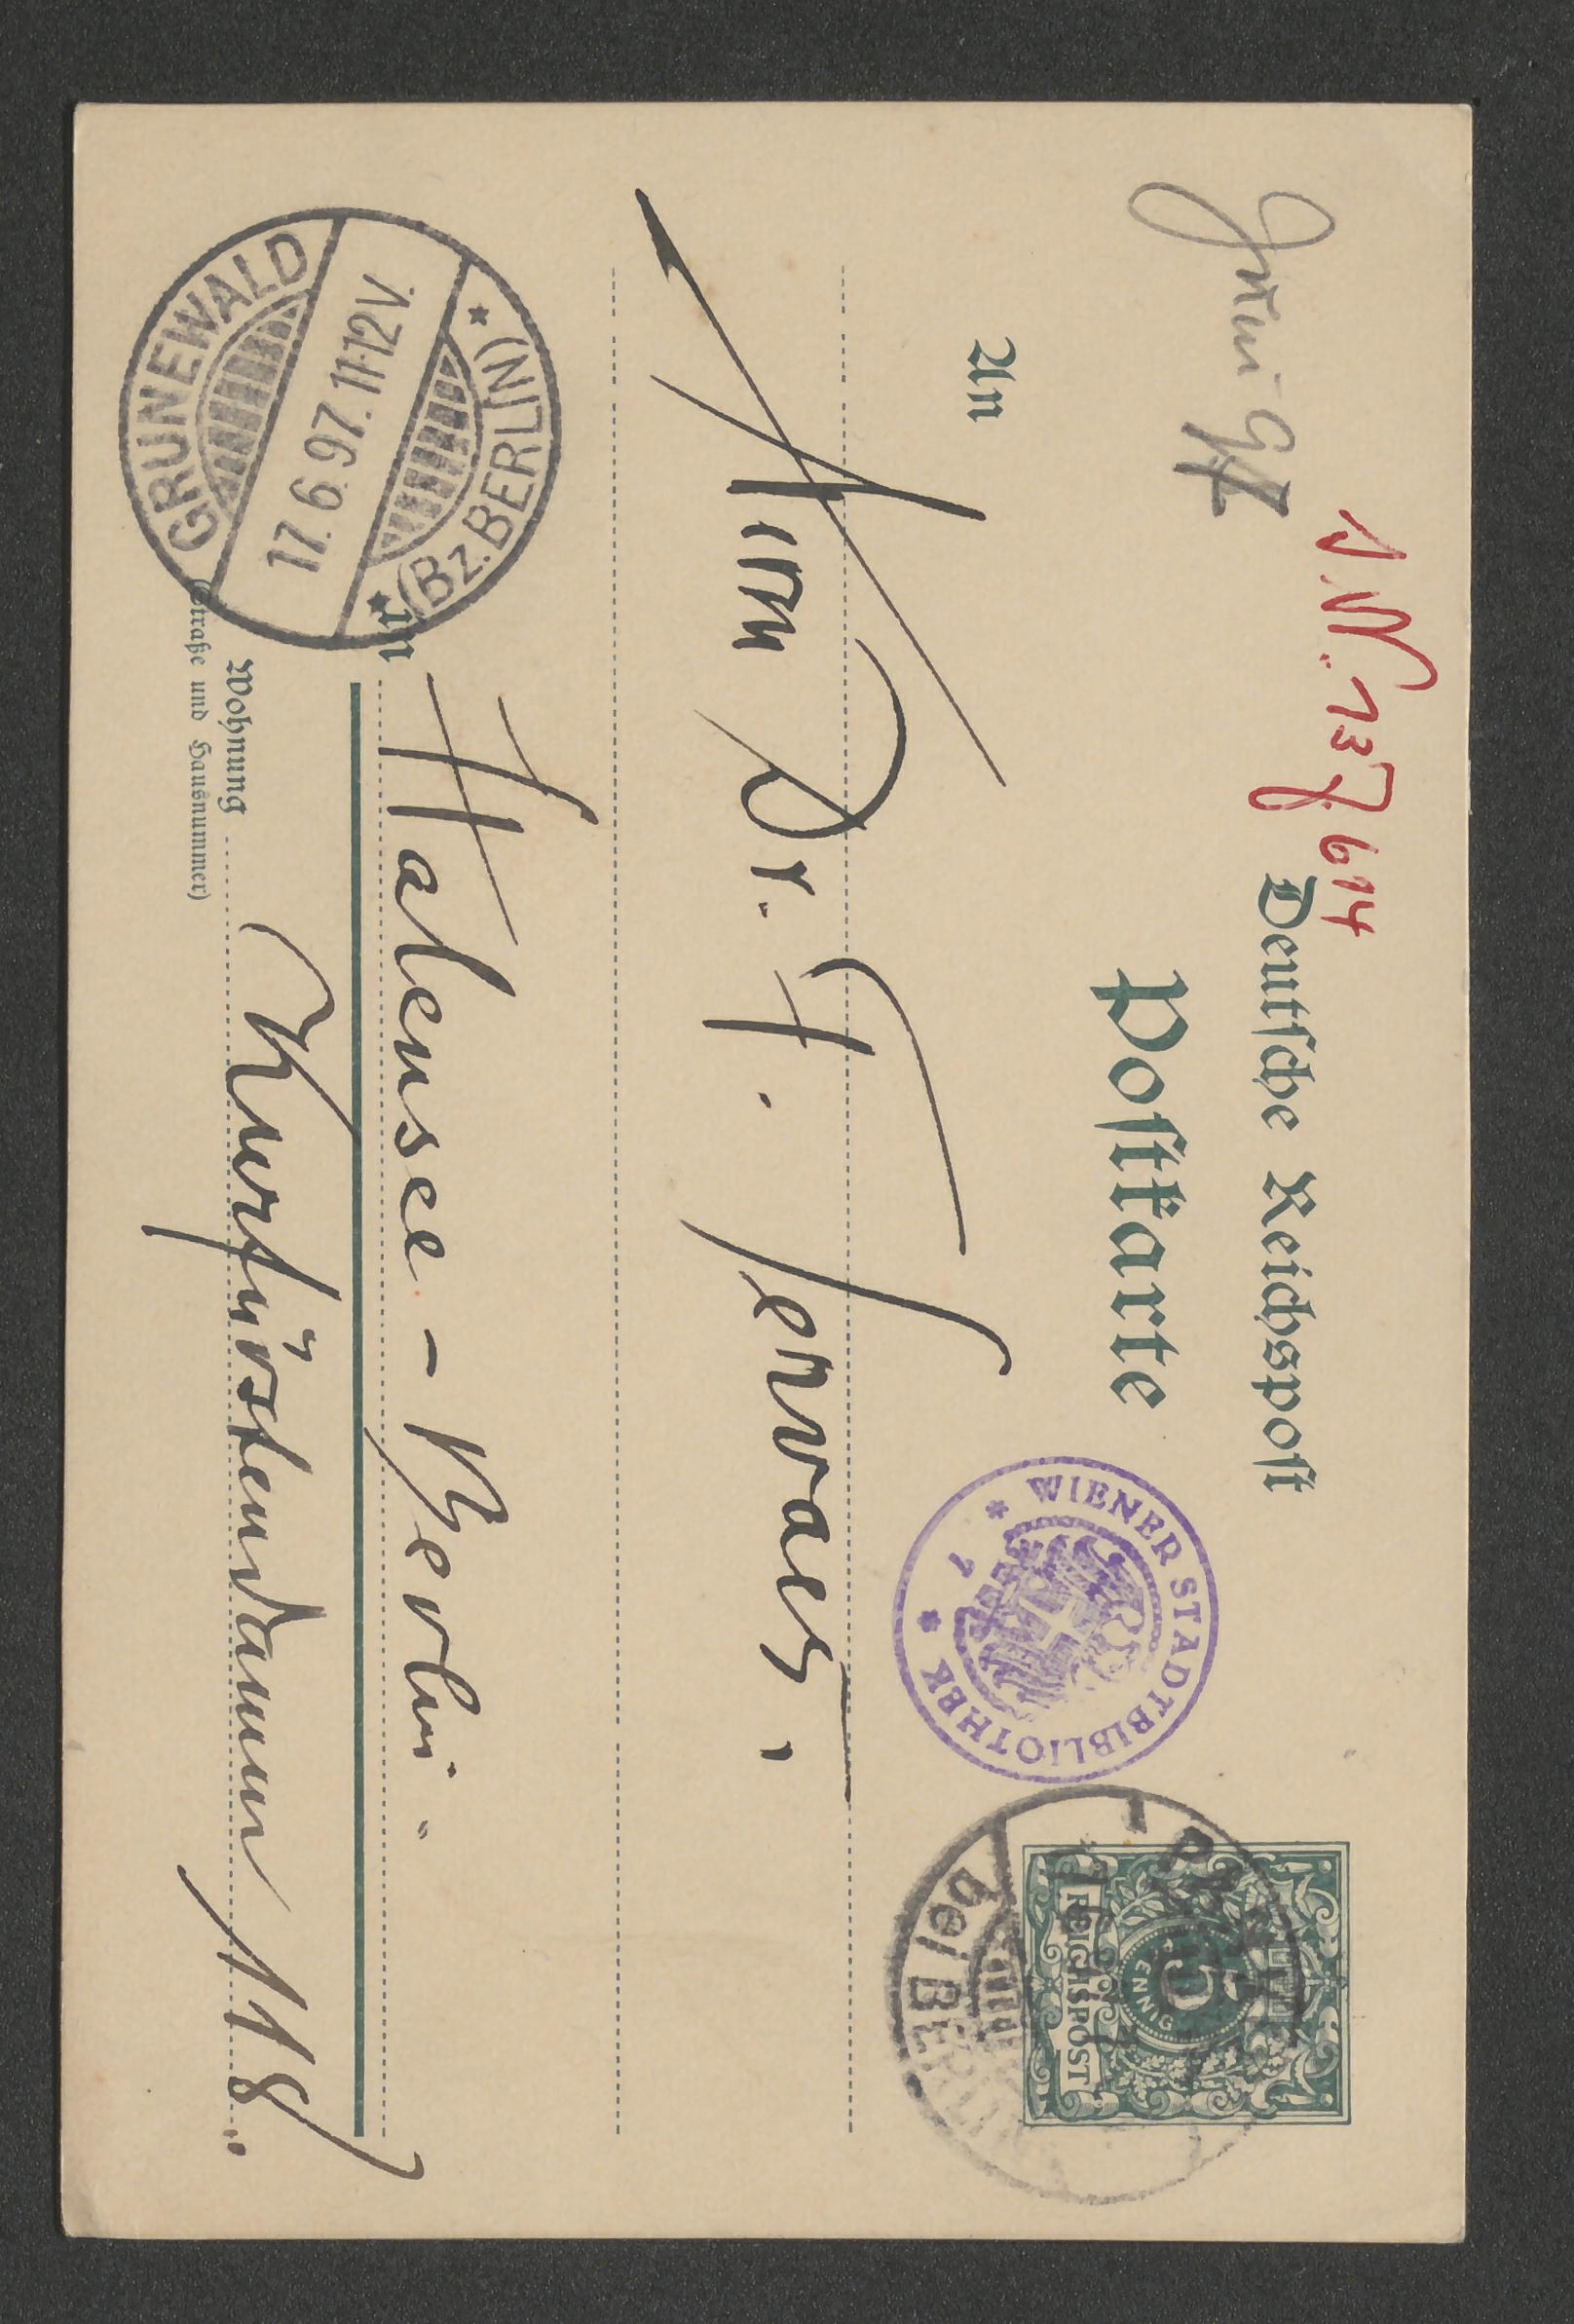 Juni 97
I.N. 137614
Deutsche Reichspost
Postkarte
WIENER STADTBIBLIOTHEK
5
PFENNIG
REICHSPOST
bei BERLIN
An
Herrn Dr. F. Servaes,
in Halensee - Berlin.
Wohnung Kurfürstendamm 118.
(Straße und Hausnummer)
GRUNEWALD
17.6.97.11-12V.
(Bz. BERLIN)